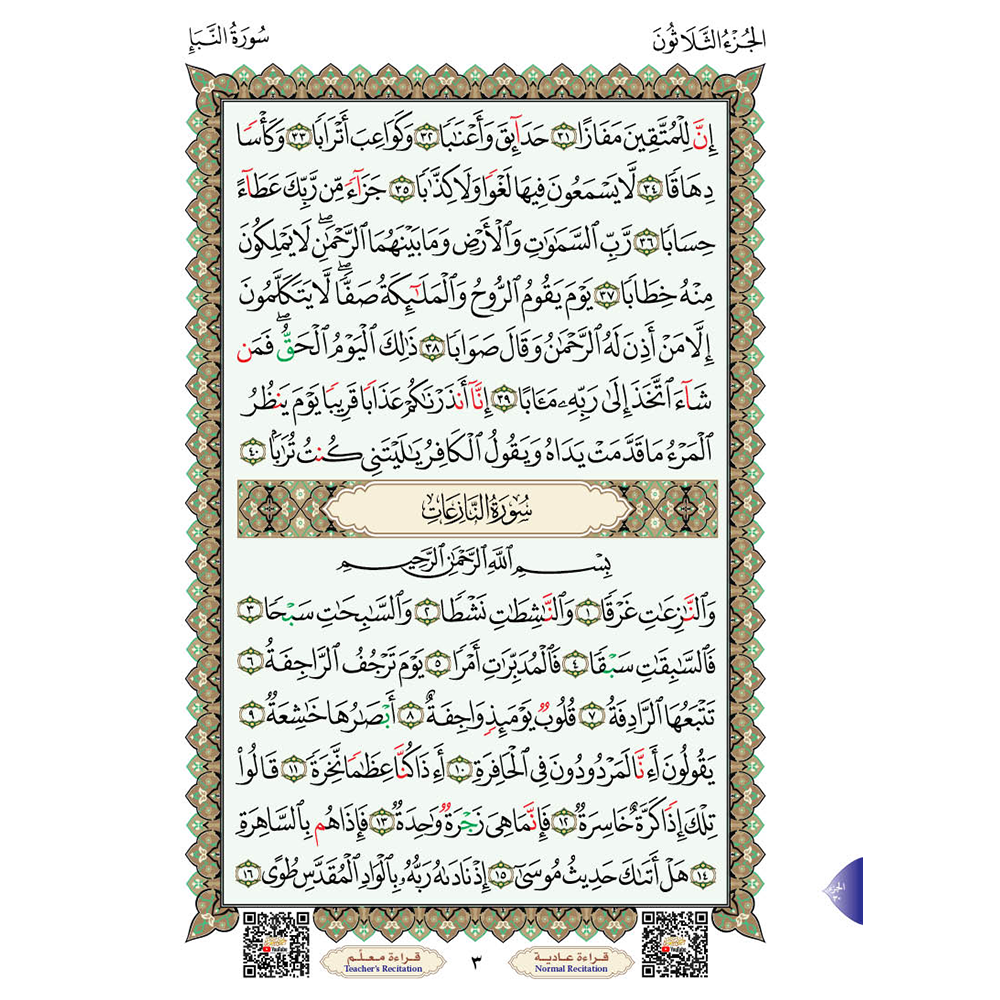 الجُزْءُ الثَّلَاثُونَ
سُورَةُ النَّبَإِ
إِنَّ لِلْمُتَّقِينَ مَفَازًا ٣١ حَدَآئِقَ وَأَعْنَٰبًا ٣٢ وَكَوَاعِبَ أَتْرَابًا ٣٣ وَكَأْسًا
دِهَاقًا ٣٤ لَّا يَسْمَعُونَ فِيهَا لَغْوًا وَلَا كِذَّٰبًا ٣٥ جَزَآءً مِّن رَّبِّكَ عَطَآءً
حِسَابًا ٣٦ رَّبِّ السَّمَٰوَٰتِ وَالْأَرْضِ وَمَا بَيْنَهُمَا الرَّحْمَٰنِۖ لَا يَمْلِكُونَ
مِنْهُ خِطَابًا ٣٧ يَوْمَ يَقُومُ الرُّوحُ وَالْمَلَٰٓئِكَةُ صَفًّاۖ لَّا يَتَكَلَّمُونَ
إِلَّا مَنْ أَذِنَ لَهُ الرَّحْمَٰنُ وَقَالَ صَوَابًا ٣٨ ذَٰلِكَ الْيَوْمُ الْحَقُّۖ فَمَن
شَآءَ اتَّخَذَ إِلَىٰ رَبِّهِۦ مَـَٔابًا ٣٩ إِنَّآ أَنذَرْنَٰكُمْ عَذَابًا قَرِيبًا يَوْمَ يَنظُرُ
الْمَرْءُ مَا قَدَّمَتْ يَدَاهُ وَيَقُولُ الْكَافِرُ يَٰلَيْتَنِي كُنتُ تُرَٰبًۢا ٤٠
سُورَةُ النَّازِعَاتِ
بِسْمِ اللَّهِ الرَّحْمَٰنِ الرَّحِيمِ
وَالنَّٰزِعَٰتِ غَرْقًا ١ وَالنَّٰشِطَٰتِ نَشْطًا ٢ وَالسَّٰبِحَٰتِ سَبْحًا ٣
فَالسَّٰبِقَٰتِ سَبْقًا ٤ فَالْمُدَبِّرَٰتِ أَمْرًا ٥ يَوْمَ تَرْجُفُ الرَّاجِفَةُ ٦
تَتْبَعُهَا الرَّادِفَةُ ٧ قُلُوبٌ يَوْمَئِذٍ وَاجِفَةٌ ٨ أَبْصَٰرُهَا خَٰشِعَةٌ ٩
يَقُولُونَ أَءِنَّا لَمَرْدُودُونَ فِي الْحَافِرَةِ ١٠ أَءِذَا كُنَّا عِظَٰمًا نَّخِرَةً ١١ قَالُوا
تِلْكَ إِذًا كَرَّةٌ خَاسِرَةٌ ١٢ فَإِنَّمَا هِيَ زَجْرَةٌ وَٰحِدَةٌ ١٣ فَإِذَا هُم بِالسَّاهِرَةِ
١٤ هَلْ أَتَىٰكَ حَدِيثُ مُوسَىٰٓ ١٥ إِذْ نَادَىٰهُ رَبُّهُۥ بِالْوَادِ الْمُقَدَّسِ طُوًى ١٦
قراءة عادية
Normal Recitation
٣
قراءة معلّم
Teacher's Recitation
YouTube
YouTube